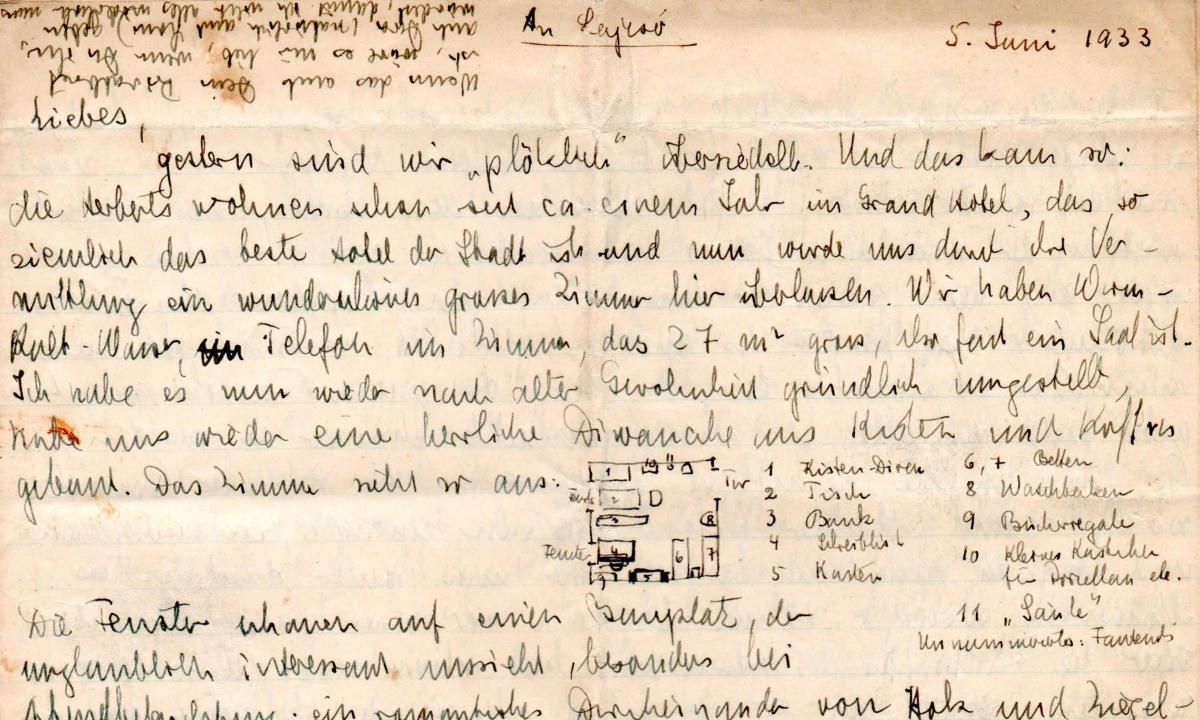 An Lajcsó
5. Juni 1933
Wenn das auch Dein
ist, wäre es mir lieb, wenn Du ihn,
auch Dora (natürlich auch Hans) geben
würdest, damit ich nicht alles
Liebes,
gestern sind wir „plötzlich“ übersiedelt. Und das kam so:
die Herberts wohnen schon seit ca. einem Jahr im Grand Hotel, das so
ziemlich das beste Hotel der Stadt ist und nun wurde uns durch ihre Ver-
mittlung ein wunderschönes grosses Zimmer hier überlassen. Wir haben Warm-
Kalt-Wasser, Telefon im Zimmer, das 27 m² gross, also fast ein Saal ist.
Ich habe es nun wieder nach alter Gewohnheit gründlich umgestellt,
habe uns wieder eine herrliche Diwanecke aus Kisten und Koffres
gebaut. Das Zimmer sieht so aus:
Tür
Fenster
1 2 3 4 5 6 7 8 9
1 Kisten-Divan
2 Tisch
3 Bank
4 Schreibtisch
5 Kasten
6, 7 Betten
8 Waschbecken
9 Bücherregale
10 kleines Kästchen
für Porzellan etc.
11 „Säule“
Unnummerierte: Fauteuils
Die Fenster schauen auf einen Bauplatz, der
unglaublich interessant aussieht, besonders bei
Abendbeleuchtung: ein romantisches Durcheinander von Holz und Ziegel-